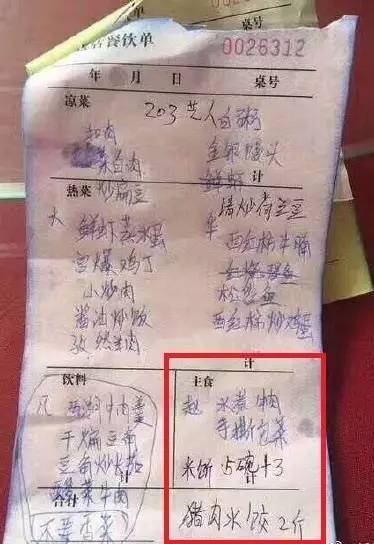 客餐饮单
0026312
年 月 日 桌号
凉菜
203 艺人 白粥
扣肉
金银馒头
鱼肉
鲜虾
计
热菜
炒扁豆
腊炒荷兰豆
大 鲜虾蒸水蛋
单 西红柿牛腩
宫爆鸡丁
小炒肉
松 鱼
酱油炒饭
西红柿炒鸡蛋
孜然羊肉
计
饮料
主食
牛肉羹
赵 水煮牛肉
干煸豆角
手撕包菜
豆角炒火茄
米饭 5碗+3
酸菜牛肉
计
合计
不要香菜
猪肉水饺 2斤